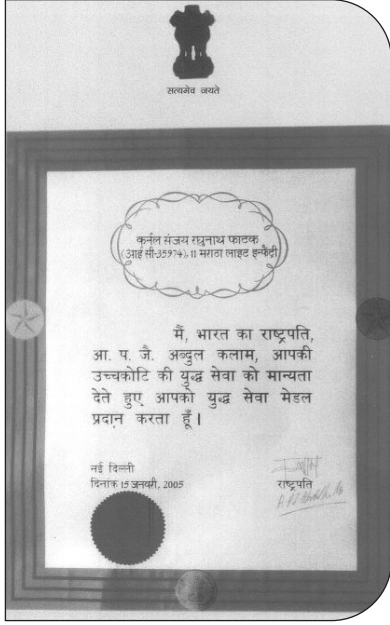 सत्यमेव जयते
कर्नल संजय रघुनाथ फाटक
(आई सी-35974), 11 मराठा लाइट इन्फैंट्री
मैं, भारत का राष्ट्रपति,
आ. प. जै. अब्दुल कलाम, आपकी
उच्चकोटि की युद्ध सेवा को मान्यता
देते हुए आपको युद्ध सेवा मेडल
प्रदान करता हूँ।
नई दिल्ली
दिनांक 15 जनवरी, 2005
राष्ट्रपति